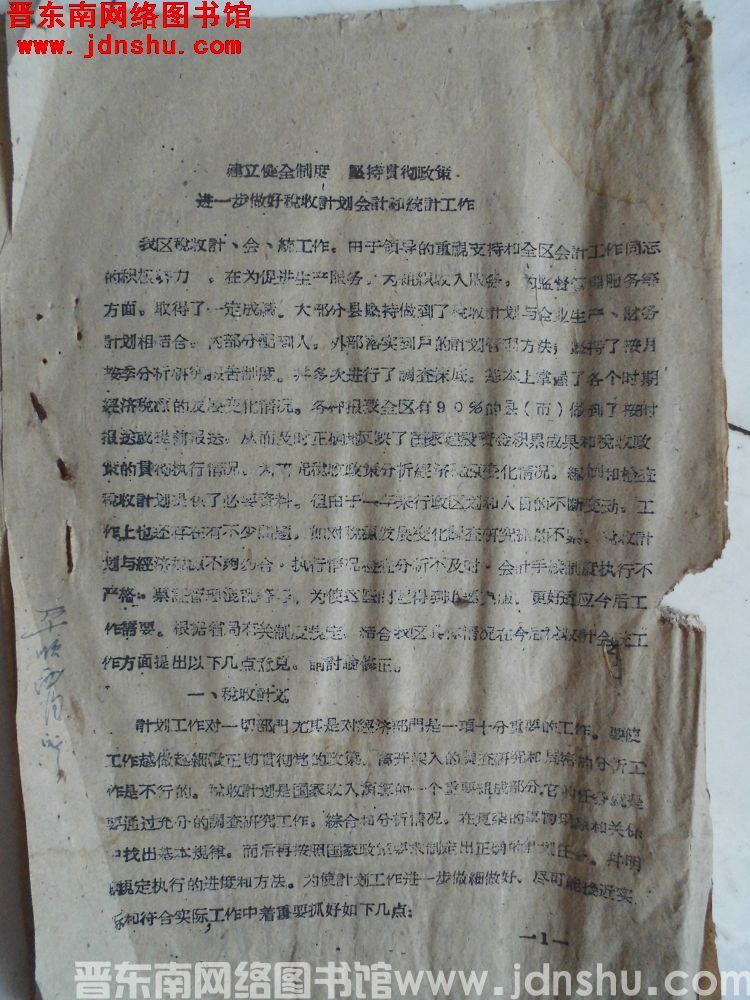 晋东南网络图书馆
www.jdnshu.com
建立健全制度 坚持貫彻政策
进一步做好税收計划会計和統計工作
我区税收計、会、統工作。由于領导的重視支持和全区会計工作同志
的积极努力，在为促进生产服务，为組織收入服务，为监督管理服务等
方面。取得了一定成績。大部分县坚持做到了税收計划与企业生产、財务
計划相結合。内部分配到人。外部落实到戶的計划管理方法；坚持了按月
按季分析研究报告制度。并多次进行了調查摸底。基本上掌握了各个时期
經济税源的发展变化情况。各种报表全区有90%的县（市）做到了按时
报送或提前报送。从而及时正确地反映了国家建設資金积累成果和税收政
策的貫彻执行情况。税收政策分析經济税源变化情况。編制和检查
税收計划提供了必要資料。但由于一年来行政区划和人員的不断变动。工
作上也还存在有不少問題。如对税源发展变化調查研究抓的不紧。税收計
划与經济税源不夠吻合。执行情况检查分析不及时。会計手續制度执行不
严格。票証管理混乱等等。为使这些問題得到改。更好适应今后工
作需要。根据省局有关制度規定。結合我区具体情况在今后税收計会統工
作方面提出以下几点意見。請討論修正。
一、税收計划
計划工作对一切部門尤其是对經济部門是一項十分重要的工作。要使
工作越做越細致正切貫彻党的政策。离开深入的調查研究和具体的分析工
作是不行的。税收計划是国家收入預算的一个重要組成部分，它的任务就是
要通过充分的調查研究工作。綜合和分析情况。在复杂的事物現象和关係
中找出基本規律。而后再按照国家政策要求制定出正确的計划任务。并明
确規定执行的进度和方法。为使計划工作进一步做細做好、尽可能接近实
际和符合实际，工作中着重要抓好如下几点：
—1—
晋东南网络图书馆www.jdnshu.com